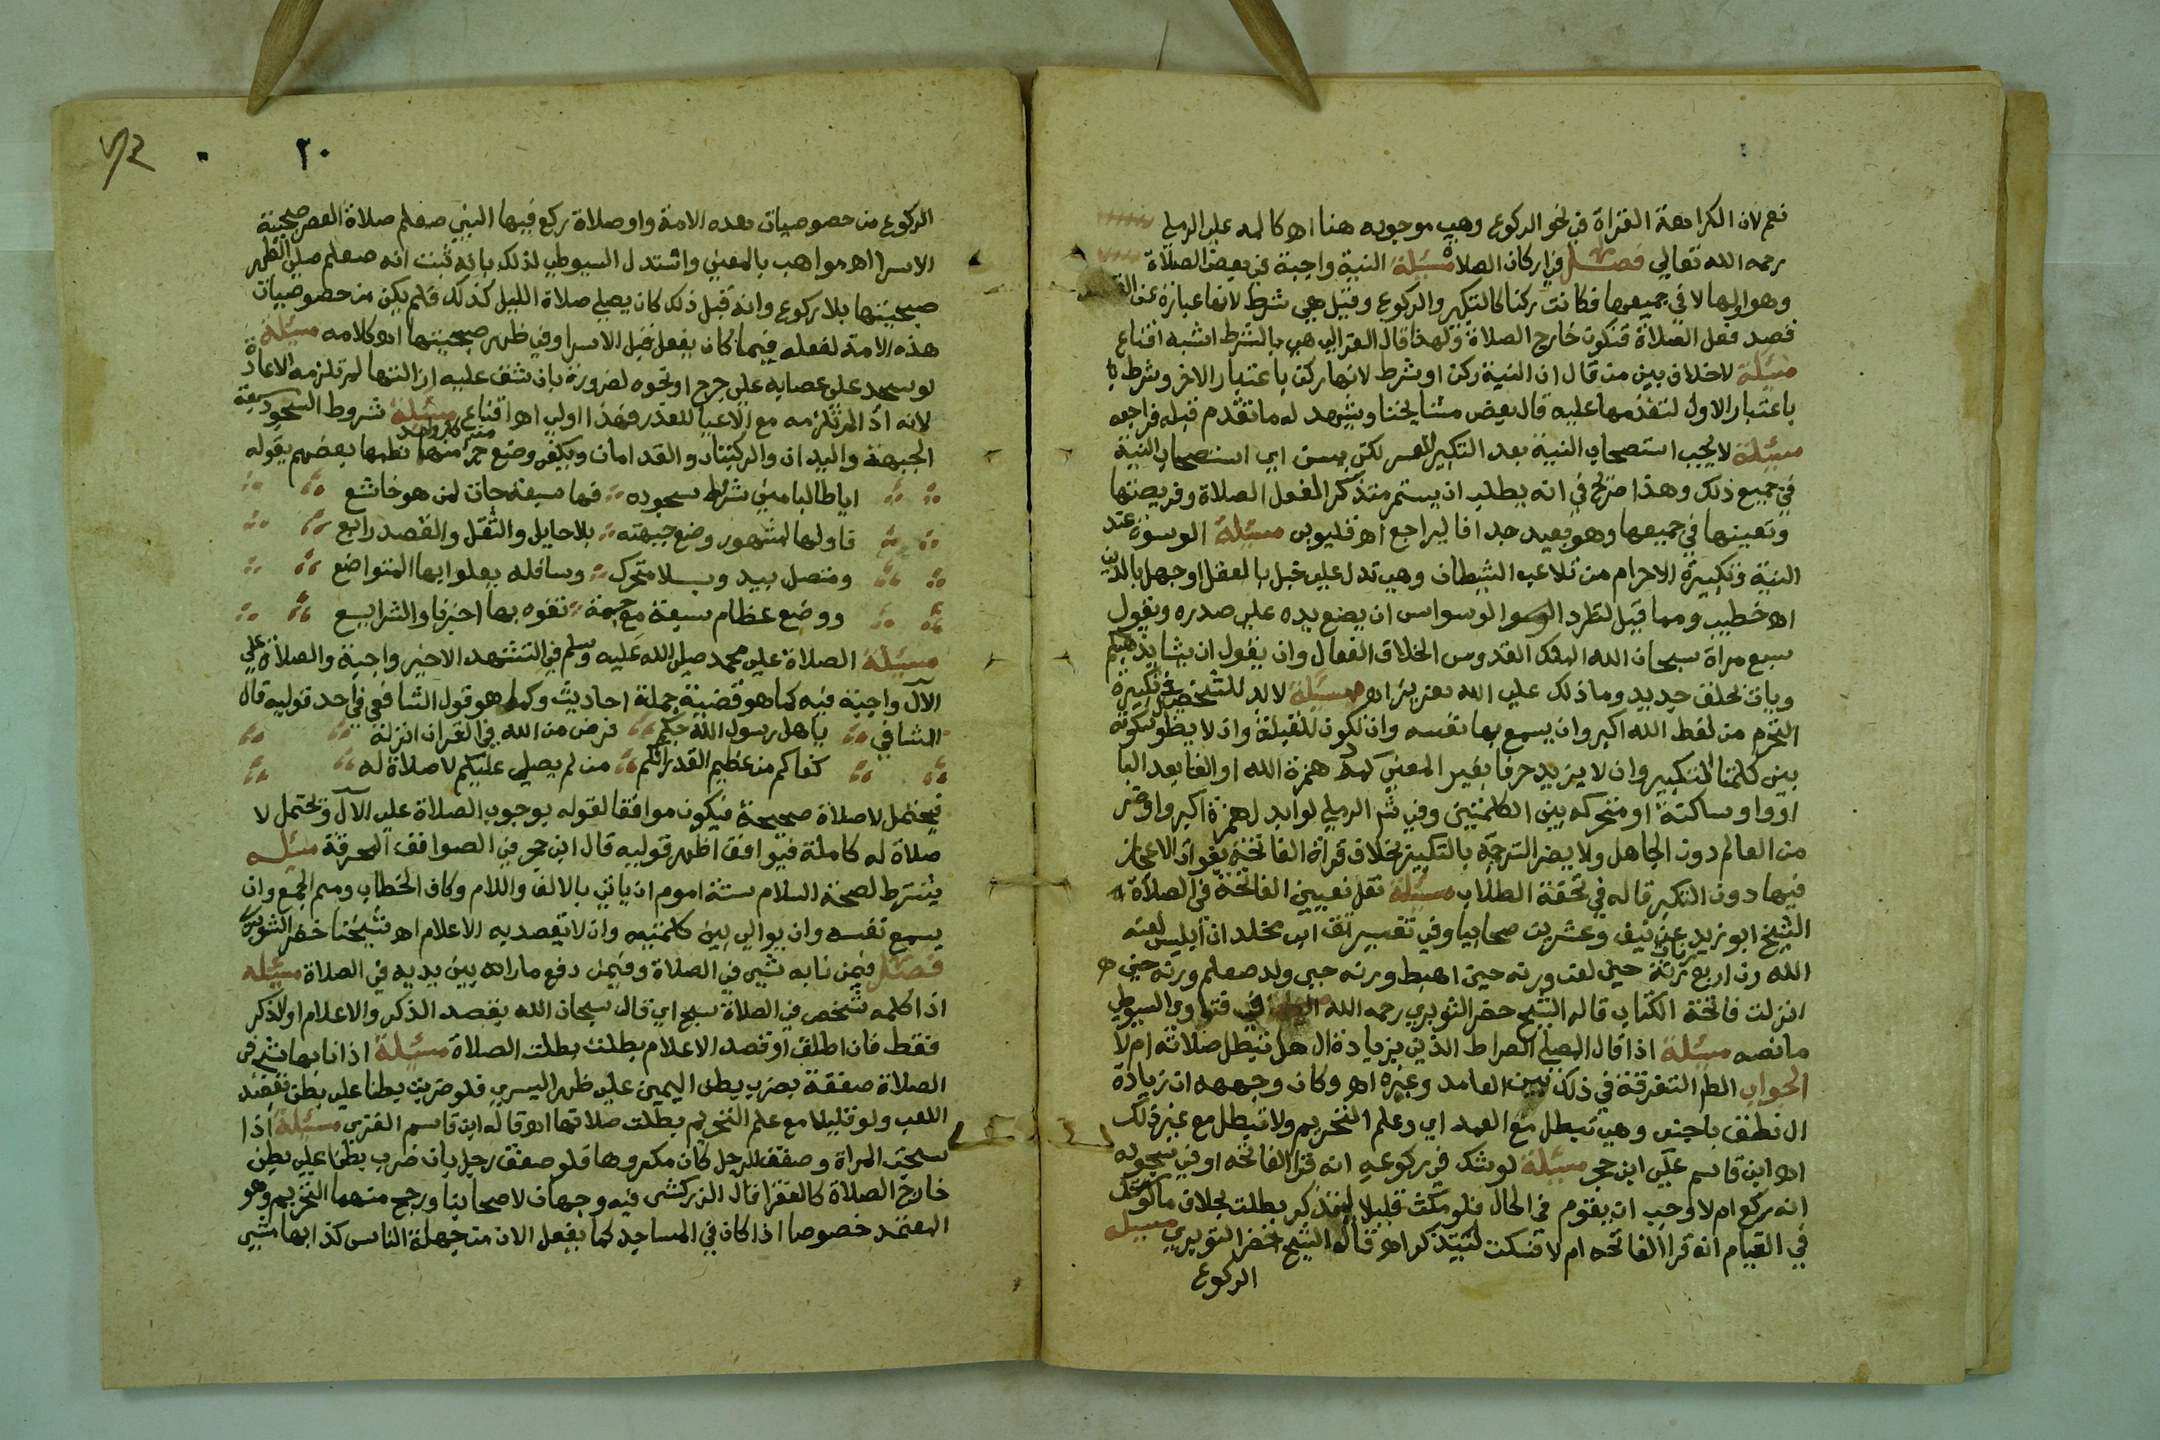 نعم لان الكراهة القراة في نحو الركوع وهي موجوده هنا اه كاله علي الرملي
رحمه الله تعالي فصل في اركان الصلاة مسئلة النية واجبة في بعض الصلاة
وهو اولها لا في جميعها فكانت ركنا كالتكبير والركوع وقيل هي شرط لانها عبارة عن
قصد فعل الصلاة فتكون خارج الصلاة ولهذا قال الغزالي هي بالشرط اشبه اقناع
مسئلة لاخلاف بين من قال ان النية ركن او شرط لانها ركن باعتبار الاخر وشرط
باعتبار الاول لتقدمها عليه قال بعض مشايخنا ويشهد له ما تقدم قبله فراجعه
مسئلة لا يجب استصحاب النية بعد التكبير للعسر لكن يسن اي استصحاب النية
في جميع ذلك وهذا صريح في انه يطلب ان يستمر متذكر الفعل الصلاة وفريضتها
وتعينها في جميعها وهو بعيد جدا فاليراجع اه قليوبي مسئلة الوسوة عند
النية وتكبيرة الاحرام من تلاعب الشيطان وهي تدل علي خبل بالعقل او جهل بالدين
اه خطيب ومما قيل لطرد الوسواس ان يضع يده علي صدره ويقول
سبع مراة سبحان الله الملك القدوس الخلاق الفعال وان يقول ان يشا يذهبكم
ويات بخلق جديد وما ذلك علي الله بعزيز اه مسئلة لابد للشخص في تكبيرة
التحرم من لفظ الله اكبر وان يسمع بها نفسه وان تكون للقبلة وان لا يطول سكوته
بين كلمتا التكبير وان لا يزيد حرفا بغير المعني كمد همزة الله او الفا بعد البا
او واو ساكنة او متحركه بين الكلمتين وفي شم الرملي لو ابدل همزة اكبر واو ضر
من العالم دون الجاهل ولا يضر الترجمة بالتكبير بخلاف قراة الفاتحة بفوات الاعجاز
فيها دون التكبير قاله في تحفة الطلاب مسئلة نقل تعيين الفاتحة في الصلاة
الشيخ ابو زيد عن نيف وعشرين صحابيا وفي تفسير تقي ابن مخلد ان ابليس لعنه
الله رن اربع رنة حين لعن ورنه حين اهبط ورنه حين ولد صعلم ورنه حين
انزلت فاتحة الكتاب قاله الشيخ خضر الشوبري رحمه الله في فتاوي السيوطي
ما نصه مسئلة اذا قال المصلي الصراط الذين بزيادة ال هل تبطل صلاته ام لا
الجواب الظم التفرقة في ذلك بين العامد وغيره اه وكان وجهه ان زيادة
ال نطق باجنبي وهي تبطل مع العمد اي وعلم التحريم ولا تبطل مع غير ذلك
اه ابن قاسم علي ابن حجر مسئلة لو شك في ركوعه انه قرا الفاتحه او في سجوده
انه ركع ام لا وجب ان يقوم في الحال فلو مكث قليلا ليتذكر بطلت بخلاف ما لو شك
في القيام انه قرا الفاتحه ام لا فسكت ليتذكر اه قاله الشيخ خضر الشوبري مسئله
الركوع
٢٠
الركوع من خصوصيات هذه الامة واو صلاة ركع فيها النبي صعلم صلاة العصر صبحية
الاسرا اه مواهب بالمعني واستدل السيوطي لذلك بانه ثبت انه صعلم صلي الظهر
صبحيتها بلا ركوع وانه قبل ذلك كان يصلي صلاة الليل كذلك فلم يكن من خصوصيات
هذه الامة لفعله فيما كان يفعل قبل الاسرا وفي ظهر صبحيتها اه كلامه مسئلة
لو سجد علي عصابه علي جرح او نحوه لضرورة بان شق عليه ازالتها لم تلزمه الاعادة
لانه اذا لم تلزمه مع الاعيا للعذر فهذا اولي اه اقناع مسئلة شروط السجود سبعة
الجبهة واليدان والركبتان والقدامان ويكفي وضع جزء من كل واحد منها نظمها بعضهم بقوله
ايا طالبا مني شروط سجوده فها سبعة حات لمن هو خاشع
فاولها المشهور وضع جبهته بلا حايل والثقل والقصد رابع
ومنصل بيد وبلا متحرك وسافله يعلوا بها المتواضع
ووضع عظام سبعة مع جبهة تفوه بها احزنا والشرايع
مسئلة الصلاة علي محمد صلي الله عليه وسلم في التشهد الاخير واجبة والصلاة علي
الآل واجبة فيه كما هو قضية جملة احاديث وكما هو قول الشافعي في احد قوليه قال
الشافي ياهل رسول الله حبكم فرض من الله في القران انزله
كفاكم من عظيم القدر انكم من لم يصلي عليكم لا صلاة له
فيحتمل لا صلاة صحيحة فيكون موافقا لقوله بوجوب الصلاة علي الآل ويحتمل لا
صلاة له كاملة فيوافق اظهر قوليه قال ابن حجر في الصوافق المحرقة مسئله
يشترط لصحة السلام ستة اموم ان ياتي بالالف واللام وكاف الخطاب وميم الجمع وان
يسمع نفسه وان يوالي بين كلمتيه وان لا يقصد به الاعلام اه شيخنا خضر الشوبري
فصل فيمن نابه شي في الصلاة وفيمن دفع ماراه بين يديه في الصلاة مسئله
اذا كلمه شخص في الصلاة سبح اي قال سبحان الله بقصد الذكر والاعلام او الذكر
فقط فان اطلق او قصد الاعلام بطلت بطلت الصلاة مسئلة اذا نابها شي في
الصلاة صفقة بضرب بطن اليمين علي ظهر اليسري فلو ضربت بطنا علي بطن بقصد
اللعب ولو قليلا مع علم التحريم بطلت صلاتها اه قاله ابن قاسم الغزي مسئلة اذا
سبحت المراة وصفق الرجل كان مكروها فلو صفق رجل بان ضرب بطنا علي بطن
خارج الصلاة كالفقرا قال الزركشي فيه وجهان لاصحابنا ورجح منهما التحريم وهو
المعتمد خصوصا اذا كان في المساجد كما يفعل الان من جهلة الناس كذا بها مشي